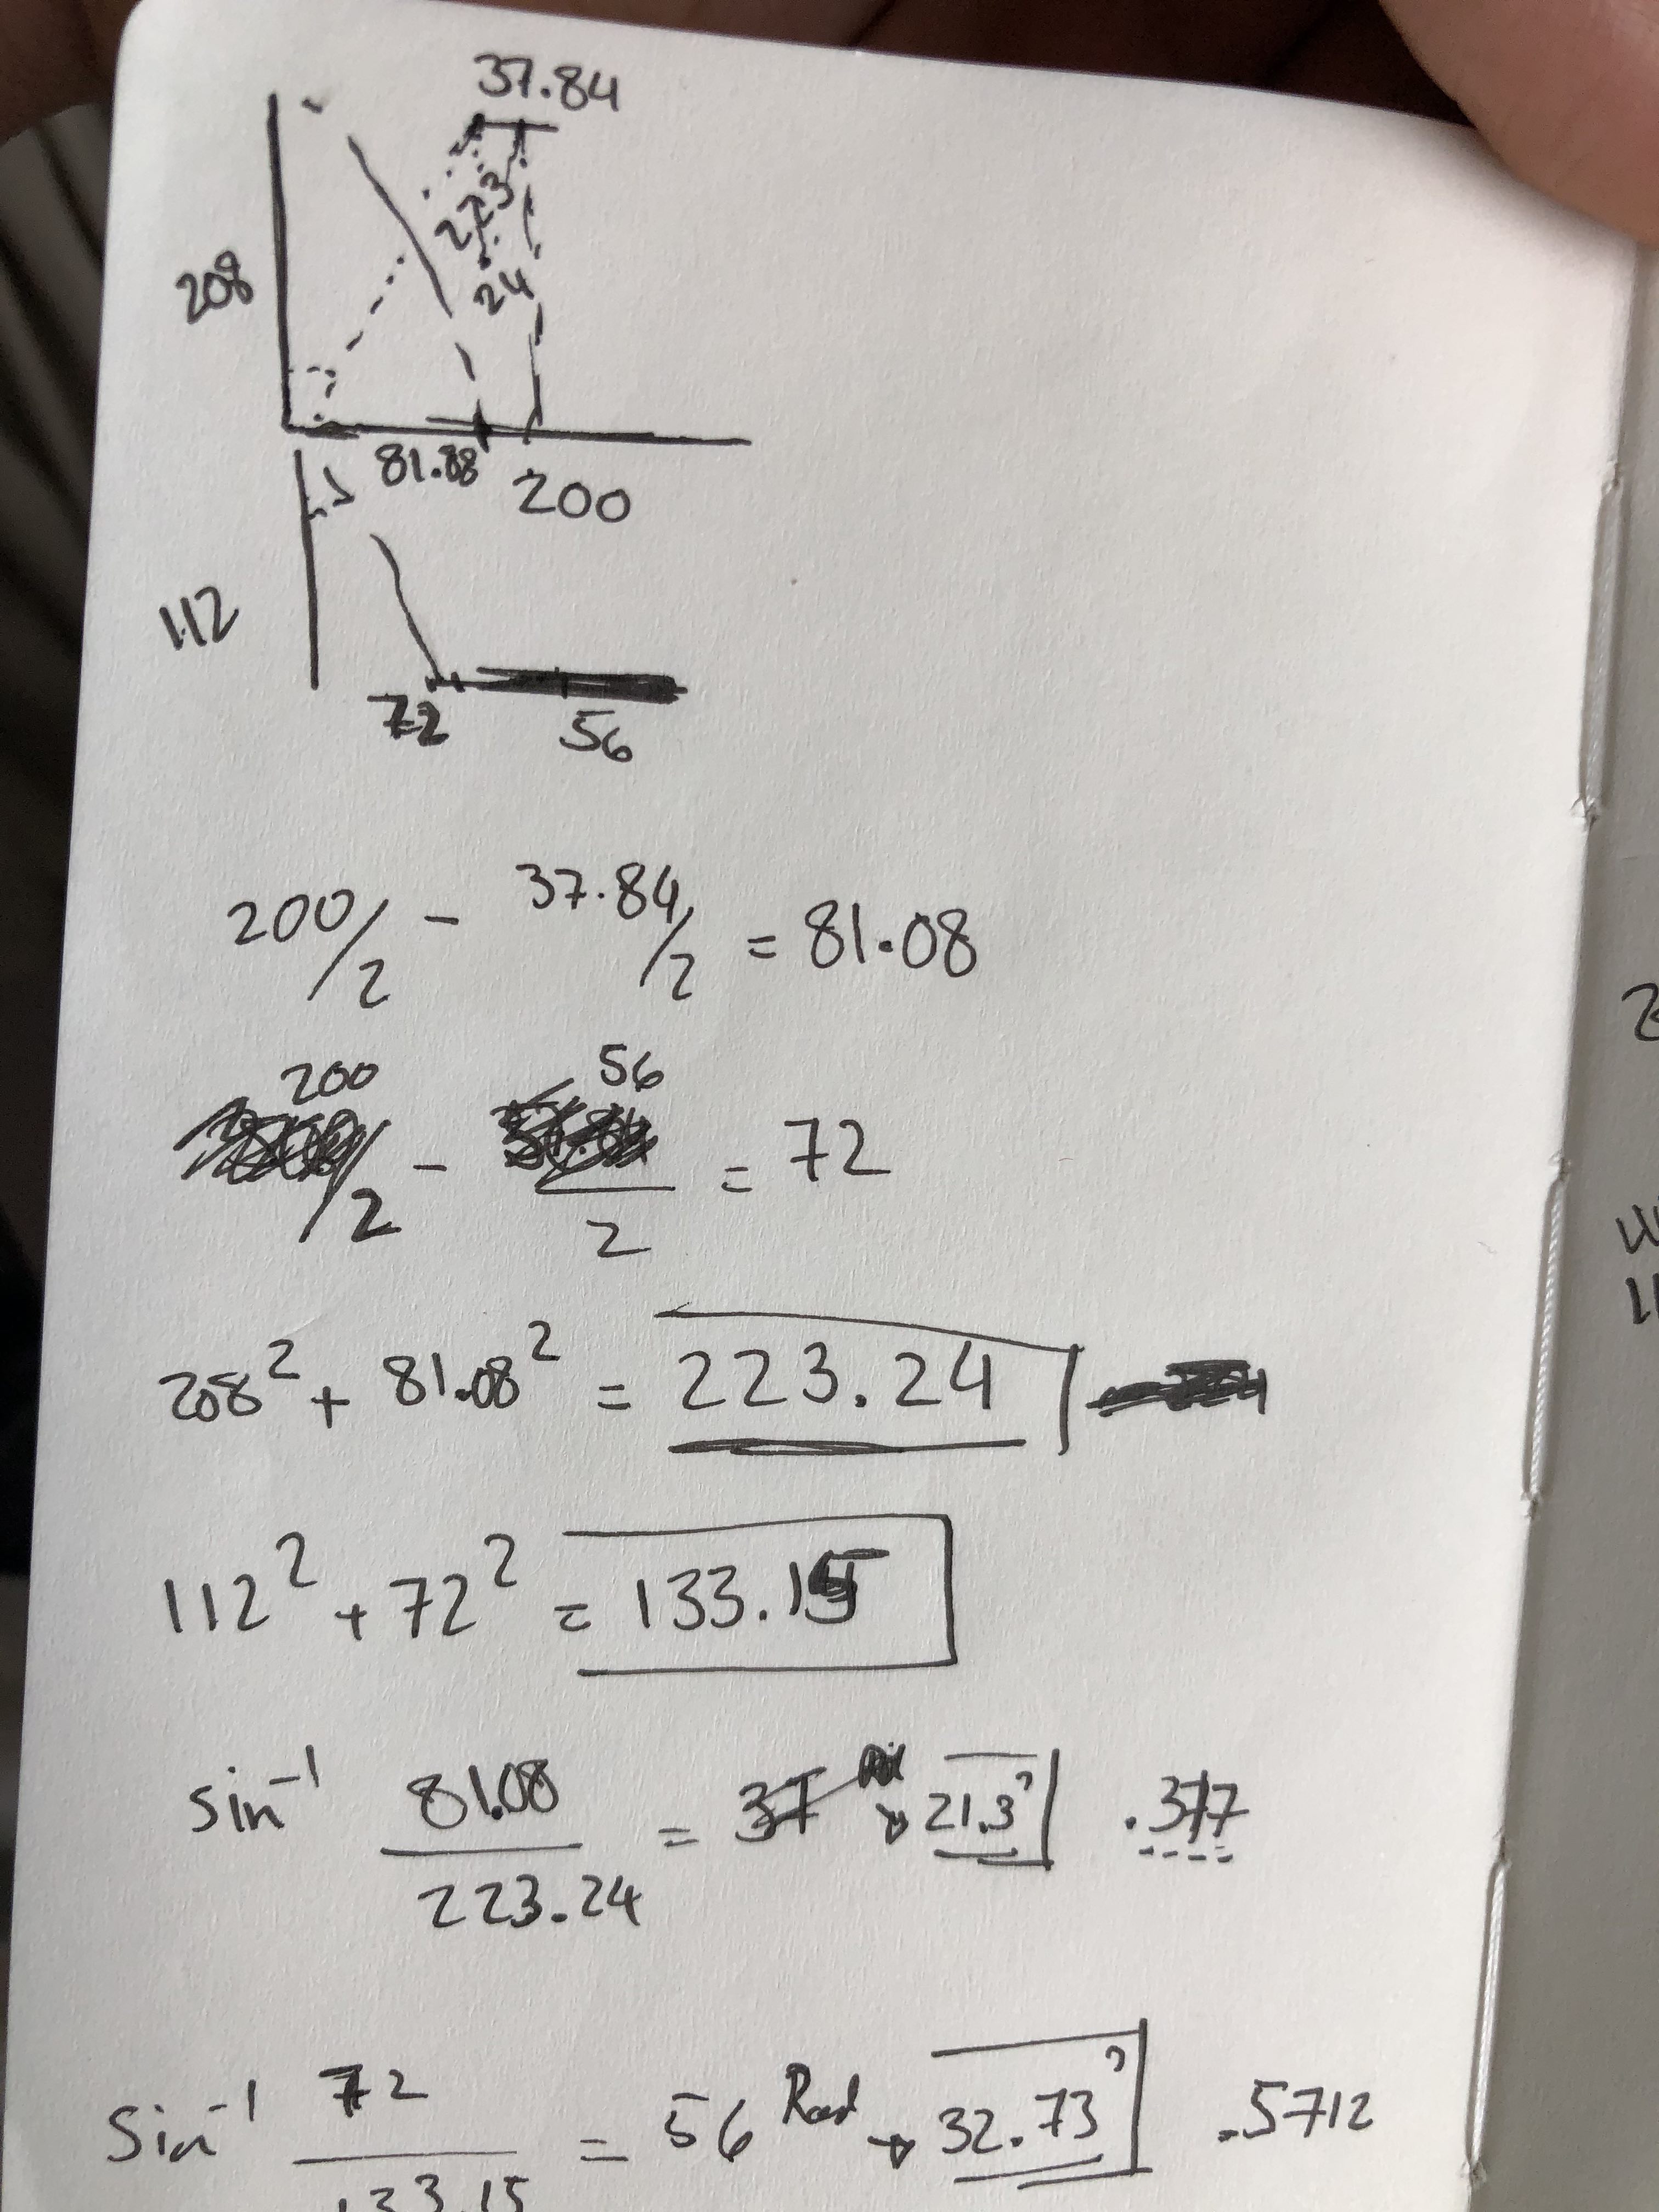 37.84
208
223
24
81.88
200
112
72
56
200/2 - 37.84/2 = 81.08
200/2 - 56/2 = 72
208² + 81.08² = 223.24
112² + 72² = 133.15
sin⁻¹ 81.08/223.24 = 37 → 21.3° .377
sin⁻¹ 72/133.15 = 56 Rad → 32.73° .5712